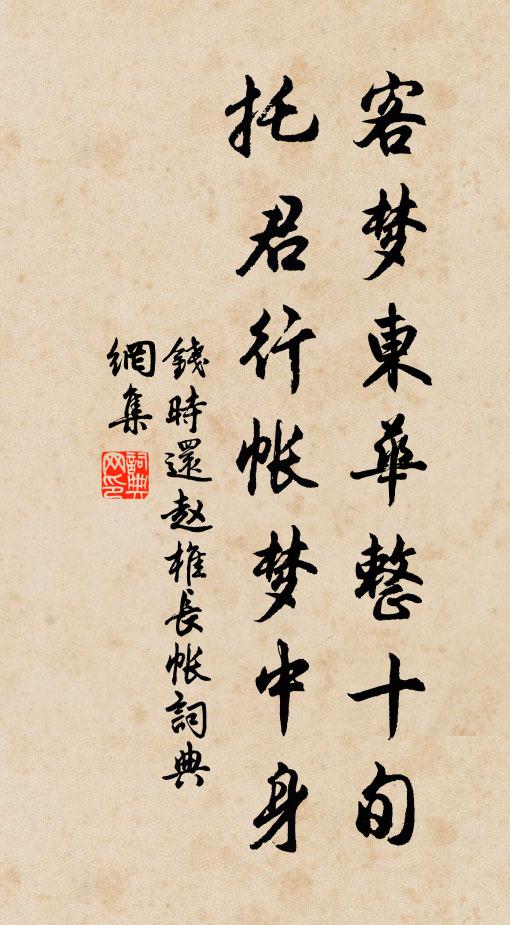 客梦東華整十旬
托君行帐梦中身
錢時還赵椎長帐詞典
網集
詞典網印